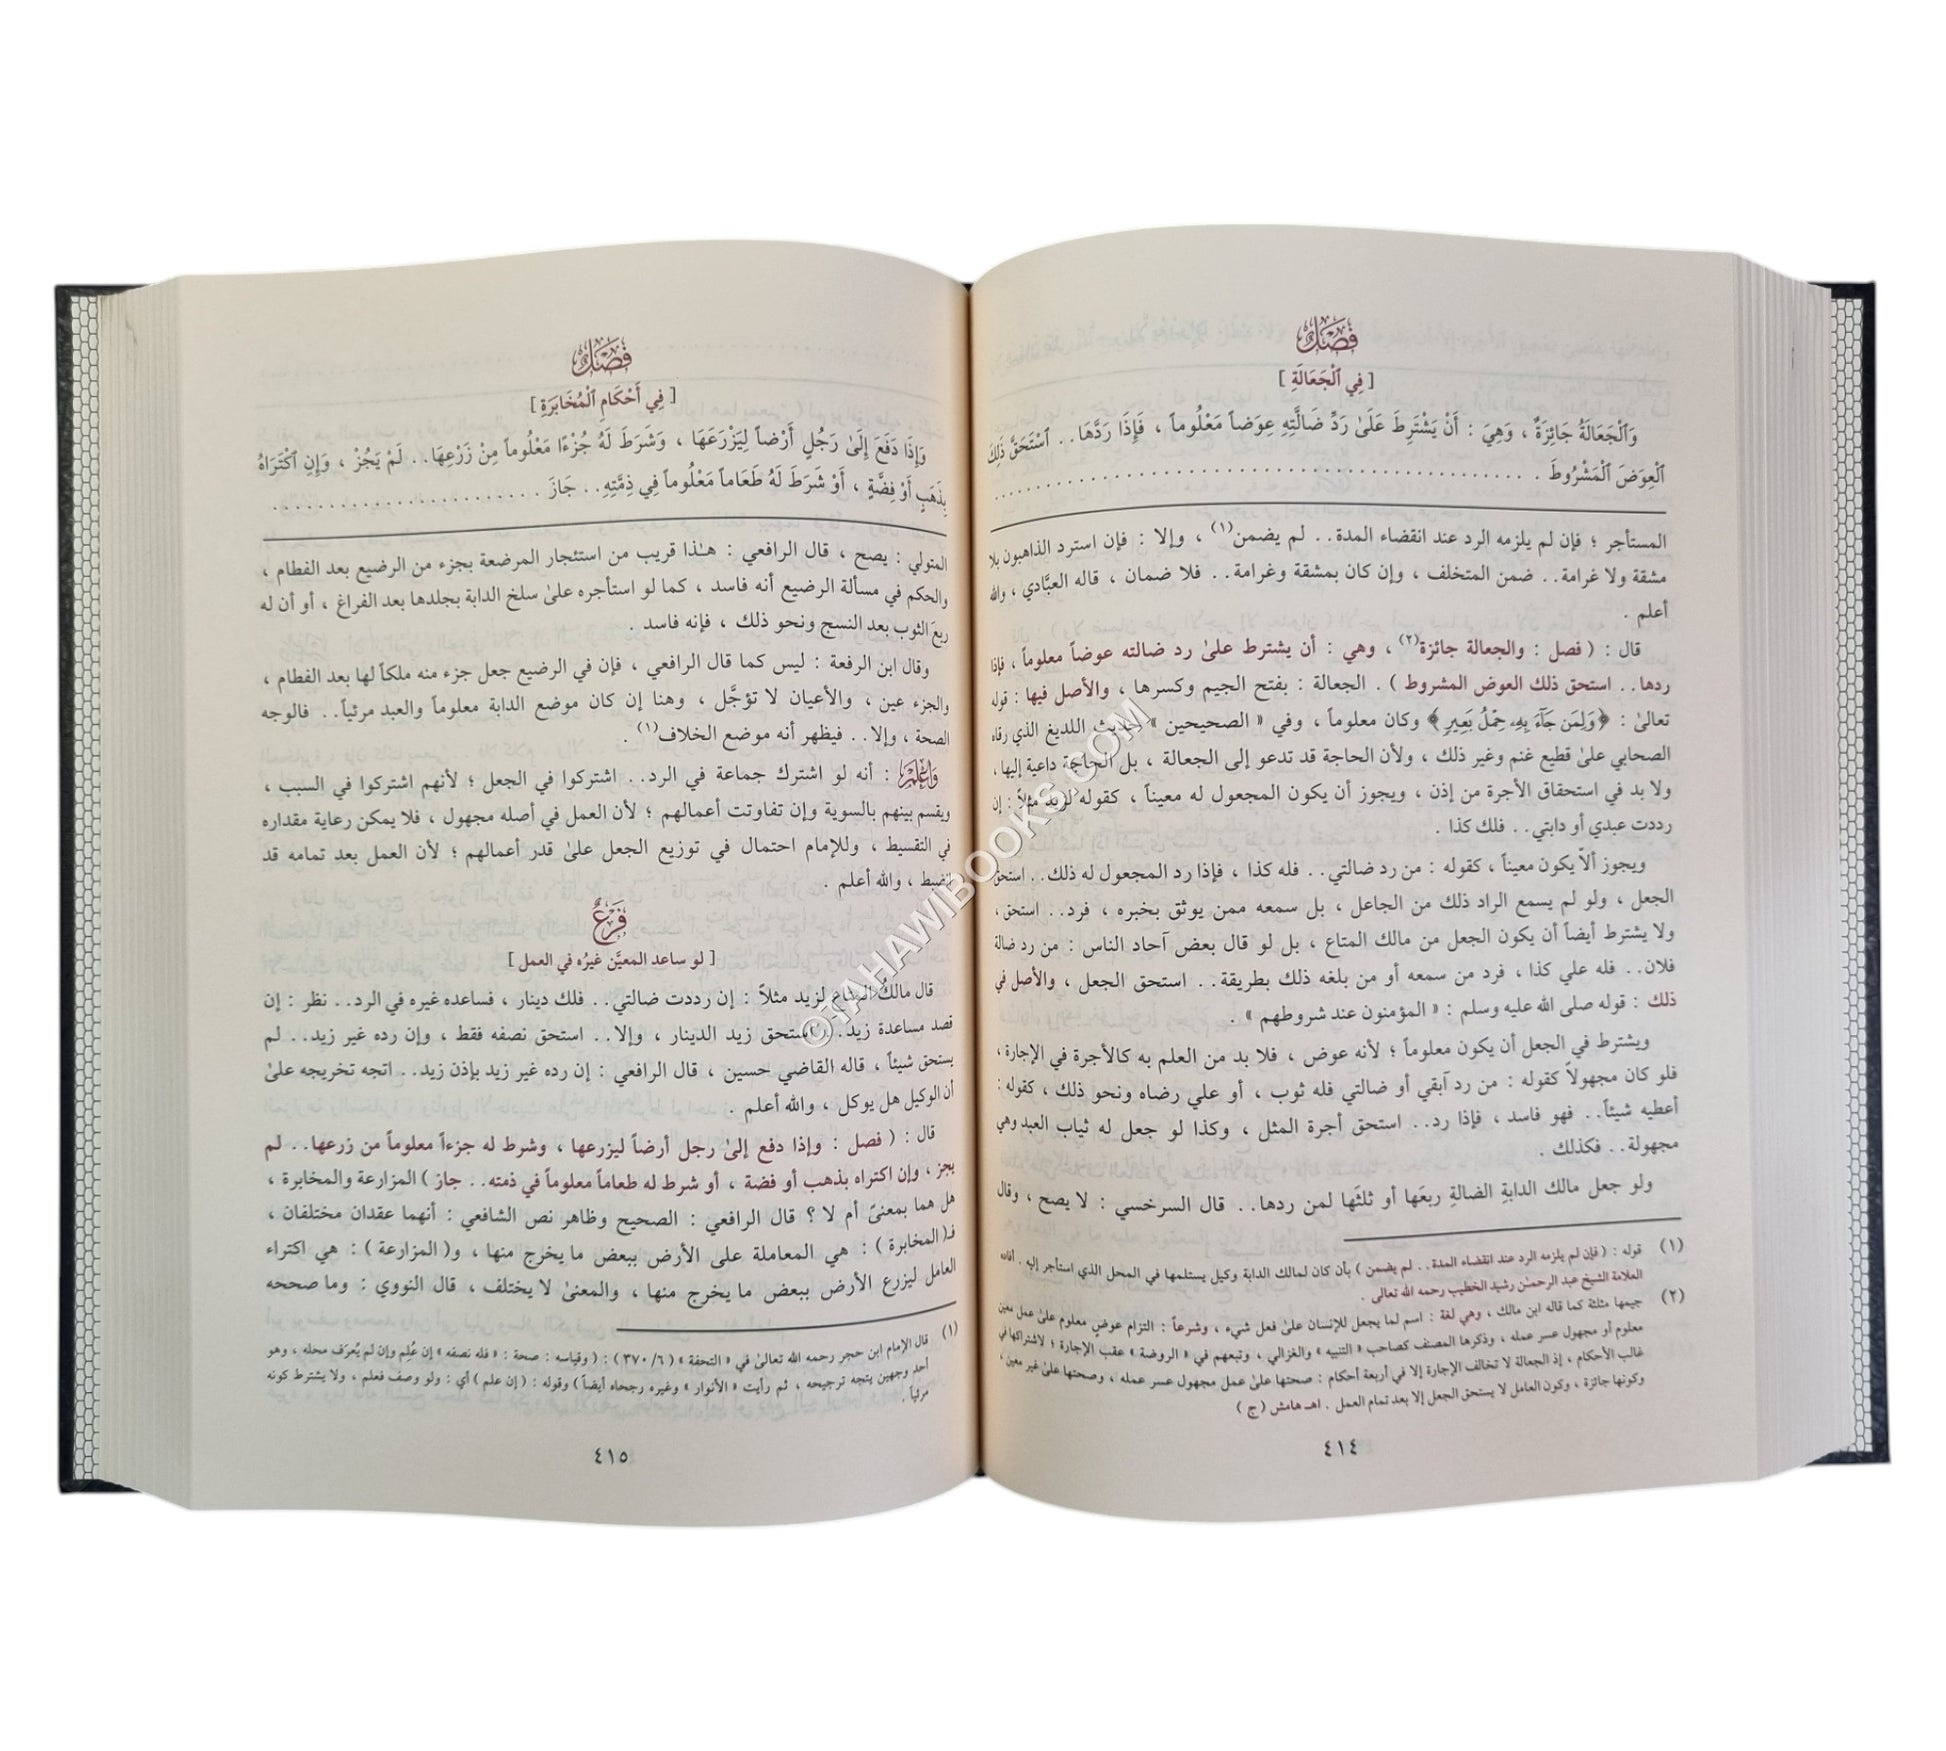 فصل
[ فِي ٱلْجَعَالَةِ ]
وَٱلْجَعَالَةُ جَائِزَةٌ ، وَهِيَ : أَنْ يَشْتَرِطَ عَلَىٰ رَدِّ ضَالَّتِهِ عِوَضاً مَعْلُوماً ، فَإِذَا رَدَّهَا . . ٱسْتَحَقَّ ذَلِكَ
ٱلْعِوَضَ ٱلْمَشْرُوطَ .
المستأجر ؛ فإن لم يلزمه الرد عند انقضاء المدة . . لم يضمن(١) ، وإلا : فإن استرد الذاهبون بلا
مشقة ولا غرامة . . ضمن المتخلف ، وإن كان بمشقة وغرامة . . فلا ضمان ، قاله العبَّادي ، والله
أعلم .
قال : ( فصل : والجعالة جائزة(٢) ، وهي : أن يشترط علىٰ رد ضالته عوضاً معلوماً ، فإذا
ردها . . استحق ذلك العوض المشروط ) . الجعالة : بفتح الجيم وكسرها ، والأصل فيها : قوله
تعالىٰ : ﴿وَلِمَن جَآءَ بِهِۦ حِمْلُ بَعِيرٍ﴾ وكان معلوماً ، وفي « الصحيحين » حديث اللديغ الذي رقاه
الصحابي علىٰ قطيع غنم وغير ذلك ، ولأن الحاجة قد تدعو إلى الجعالة ، بل الحاجة داعية إليها ،
ولا بد في استحقاق الأجرة من إذن ، ويجوز أن يكون المجعول له معيناً ، كقوله لزيد مثلاً : إن
رددت عبدي أو دابتي . . فلك كذا .
ويجوز ألاَّ يكون معيناً ، كقوله : من رد ضالتي . . فله كذا ، فإذا رد المجعول له ذلك . . استحق
الجعل ، ولو لم يسمع الراد ذلك من الجاعل ، بل سمعه ممن يوثق بخبره ، فرد . . استحق ،
ولا يشترط أيضاً أن يكون الجعل من مالك المتاع ، بل لو قال بعض آحاد الناس : من رد ضالة
فلان . . فله علي كذا ، فرد من سمعه أو من بلغه ذلك بطريقة . . استحق الجعل ، والأصل في
ذلك : قوله صلى الله عليه وسلم : « المؤمنون عند شروطهم » .
ويشترط في الجعل أن يكون معلوماً ؛ لأنه عوض ، فلا بد من العلم به كالأجرة في الإجارة ،
فلو كان مجهولاً كقوله : من رد آبقي أو ضالتي فله ثوب ، أو علي رضاه ونحو ذلك ، كقوله :
أعطيه شيئاً . . فهو فاسد ، فإذا رد . . استحق أجرة المثل ، وكذا لو جعل له ثياب العبد وهي
مجهولة . . فكذلك .
ولو جعل مالك الدابةِ الضالةِ ربعَها أو ثلثَها لمن ردها . . قال السرخسي : لا يصح ، وقال
(١) قوله : ( فإن لم يلزمه الرد عند انقضاء المدة . . لم يضمن ) بأن كان لمالك الدابة وكيل يستلمها في المحل الذي استأجر إليه . أفاده
العلامة الشيخ عبد الرحمٰن رشيد الخطيب رحمه الله تعالى .
(٢) جيمها مثلثة كما قاله ابن مالك ، وهي لغة : اسم لما يجعل للإنسان علىٰ فعل شيء ، وشرعاً : التزام عوضٍ معلوم علىٰ عمل معين
معلوم أو مجهول عسر عمله ، وذكرها المصنف كصاحب « التنبيه » والغزالي ، وتبعهم في « الروضة » عقب الإجارة ؛ لاشتراكها في
غالب الأحكام ، إذ الجعالة لا تخالف الإجارة إلا في أربعة أحكام : صحتها علىٰ عمل مجهول عسر عمله ، وصحتها علىٰ غير معين ،
وكونها جائزة ، وكون العامل لا يستحق الجعل إلا بعد تمام العمل . اهـ هامش ( ج )
٤١٤
فصل
[ فِي أَحْكَامِ ٱلْمُخَابَرَةِ ]
وَإِذَا دَفَعَ إِلَىٰ رَجُلٍ أَرْضاً لِيَزْرَعَهَا ، وَشَرَطَ لَهُ جُزْءًا مَعْلُوماً مِنْ زَرْعِهَا . . لَمْ يَجُزْ ، وَإِنِ ٱكْتَرَاهُ
بِذَهَبٍ أَوْ فِضَّةٍ ، أَوْ شَرَطَ لَهُ طَعَاماً مَعْلُوماً فِي ذِمَّتِهِ . . جَازَ .
المتولي : يصح ، قال الرافعي : هـٰذا قريب من استئجار المرضعة بجزء من الرضيع بعد الفطام ،
والحكم في مسألة الرضيع أنه فاسد ، كما لو استأجره علىٰ سلخ الدابة بجلدها بعد الفراغ ، أو أن له
ربعَ الثوب بعد النسج ونحو ذلك ، فإنه فاسد .
وقال ابن الرفعة : ليس كما قال الرافعي ، فإن في الرضيع جعل جزء منه ملكاً لها بعد الفطام ،
والجزء عين ، والأعيان لا تؤجَّل ، وهنا إن كان موضع الدابة معلوماً والعبد مرئياً . . فالوجه
الصحة ، وإلا . . فيظهر أنه موضع الخلاف(١) .
وَاعْلَمْ : أنه لو اشترك جماعة في الرد . . اشتركوا في الجعل ؛ لأنهم اشتركوا في السبب ،
ويقسم بينهم بالسوية وإن تفاوتت أعمالهم ؛ لأن العمل في أصله مجهول ، فلا يمكن رعاية مقداره
في التقسيط ، وللإمام احتمال في توزيع الجعل علىٰ قدر أعمالهم ؛ لأن العمل بعد تمامه قد
انضبط ، والله أعلم .
فَرْعٌ
[ لو ساعد المعيَّن غيرُه في العمل ]
قال مالكُ المتاع لزيد مثلاً : إن رددت ضالتي . . فلك دينار ، فساعده غيره في الرد . . نظر : إن
قصد مساعدة زيد . . استحق زيد الدينار ، وإلا . . استحق نصفه فقط ، وإن رده غير زيد . . لم
يستحق شيئاً ، قاله القاضي حسين ، قال الرافعي : إن رده غير زيد بإذن زيد . . اتجه تخريجه علىٰ
أن الوكيل هل يوكل ، والله أعلم .
قال : ( فصل : وإذا دفع إلىٰ رجل أرضاً ليزرعها ، وشرط له جزءاً معلوماً من زرعها . . لم
يجز ، وإن اكتراه بذهب أو فضة ، أو شرط له طعاماً معلوماً في ذمته . . جاز ) المزارعة والمخابرة ،
هل هما بمعنىً أم لا ؟ قال الرافعي : الصحيح وظاهر نص الشافعي : أنهما عقدان مختلفان ،
فـ( المخابرة ) : هي المعاملة على الأرض ببعض ما يخرج منها ، و( المزارعة ) : هي اكتراء
العامل ليزرع الأرض ببعض ما يخرج منها ، والمعنىٰ لا يختلف ، قال النووي : وما صححه
(١) قال الإمام ابن حجر رحمه الله تعالىٰ في « التحفة » ( ٦/ ٣٧٠ ) : ( وقياسه : صحة : « فله نصفه » إن عُلِم وإن لم يُعرَف محله ، وهو
أحد وجهين يتجه ترجيحه ، ثم رأيت « الأنوار » وغيره رجحاه أيضاً ) وقوله : ( إن علم ) أي : ولو وصف فعلم ، ولا يشترط كونه
مرئياً .
٤١٥
©TAHAWIBOOKS.COM